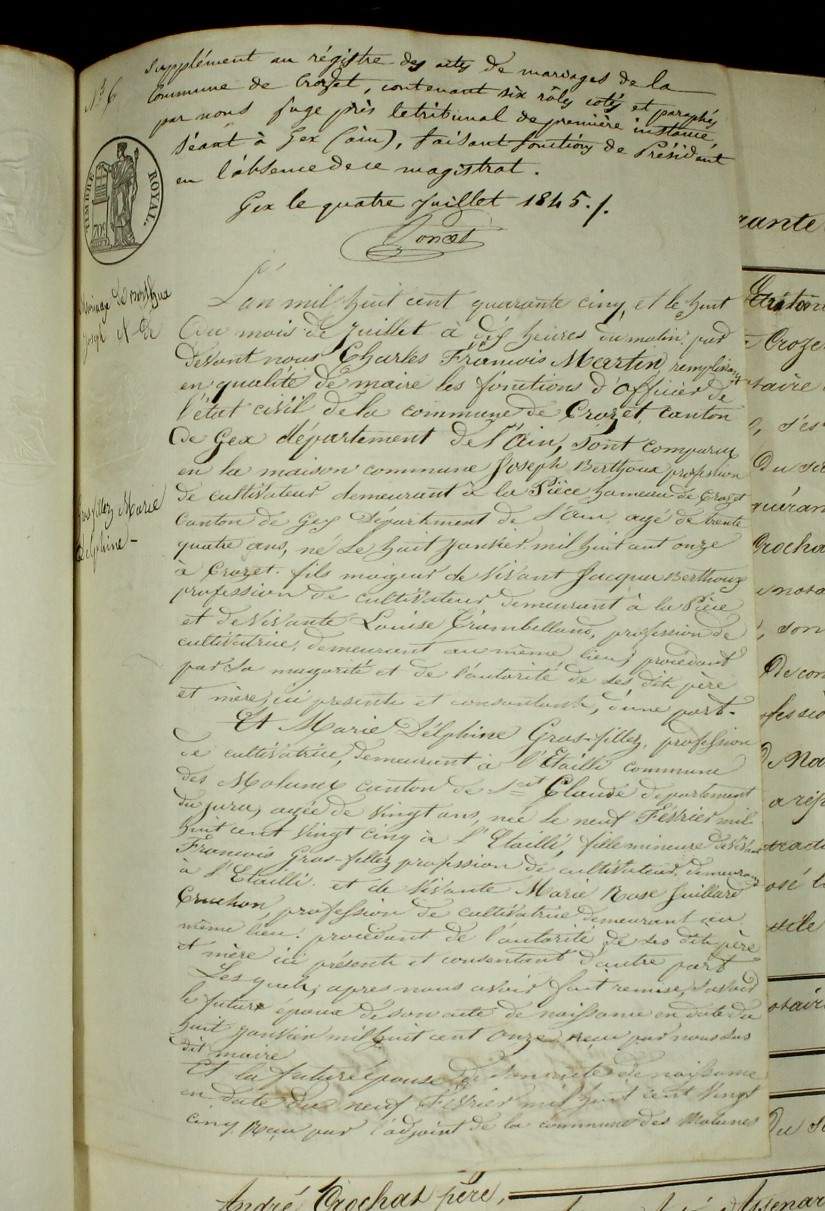 N° 6
Supplément au régistre des actes de mariages de la
Commune de Crozet, contenant six rôles cotés et paraphés
par nous Juge près le tribunal de première instance,
séant à Gex (ain), faisant fonctions de Président
en l'absence de ce magistrat.
Gex le quatre Juillet 1845./.
Poncet
TIMBRE ROYAL.
Mariage
Joseph
Gros-fillez Marie
Delphine-
L'an mil huit cent quarante cinq, et le huit
du mois de Juillet à dix heures du matin, par
devant nous Charles François Martin, remplissant
en qualité de maire les fonctions d'officier de
l'état civil de la commune de Crozet, canton
de Gex département de l'ain, sont comparus
en la maison commune Joseph Berthoux profession
de cultivateur demeurant à la Pièce hameau de Crozet
canton de Gex Département de l'ain, agé de trente
quatre ans, né le huit Janvier mil huit cent onze
à Crozet. fils majeur de vivant Jacques Berthoux
profession de cultivateur demeurant à la Pièce
et de vivante Louise profession de
cultivatrice, demeurant au même lieu; procédant
par sa majorité et de l'autorité de ses dits père
et mère, ici présents et consentants, d'une part.
Et Marie Délphine Gros-fillez, profession
de cultivatrice, demeurant à l'Etaillé commune
des Molunes canton de St Claude département
du Jura, agée de vingt ans, née le neuf Février mil
huit cent vingt cinq à L'Etaillé, fille mineure de vivant
François Gros-fillez profession de cultivateur, demeurant
à l'Etaillé. et de vivante Marie Rose Guillard
profession de cultivatrice demeurant au
même lieu: procédant de l'autorité de ses dits père
et mère ici présents et consentant d'autre part
Les quels, apres nous avoir fait remise, savoir
le futur époux de son acte de naissance en date du
huit Janvier mil huit cent onze reçu par nous sus
dit maire
Et la future épouse de son acte de naissance
en date du neuf Février mil huit cent vingt
cinq, reçu par l'adjoint de la commune des Molunes
André Crochat père,